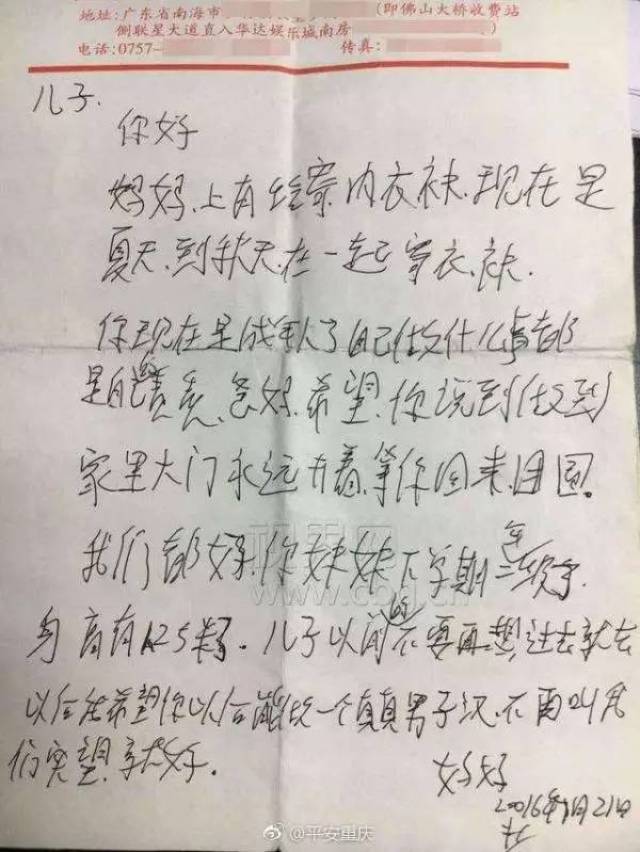 地址:广东省南海市 (即佛山大桥收费站
侧联星大道直入华达娱乐城南房 )
电话:0757- 传真:
儿子.
你好
妈妈上有给寄内衣裤.现在是
夏天.到秋天.在一起寄衣裤.
你现在是成年人了自己做什么事都
是自己负责.爸妈.希望.你说到做到
家里大门永远开着.等你回来.团圆。
我们都好.你妹妹下学期二年级学.
身高有125 了.儿子以前的不要再想过去就去
以后 希望你以后能做一个真真男子汉.不要叫我
们失望就好.
妈妈
20016年 月21日
@平安重庆